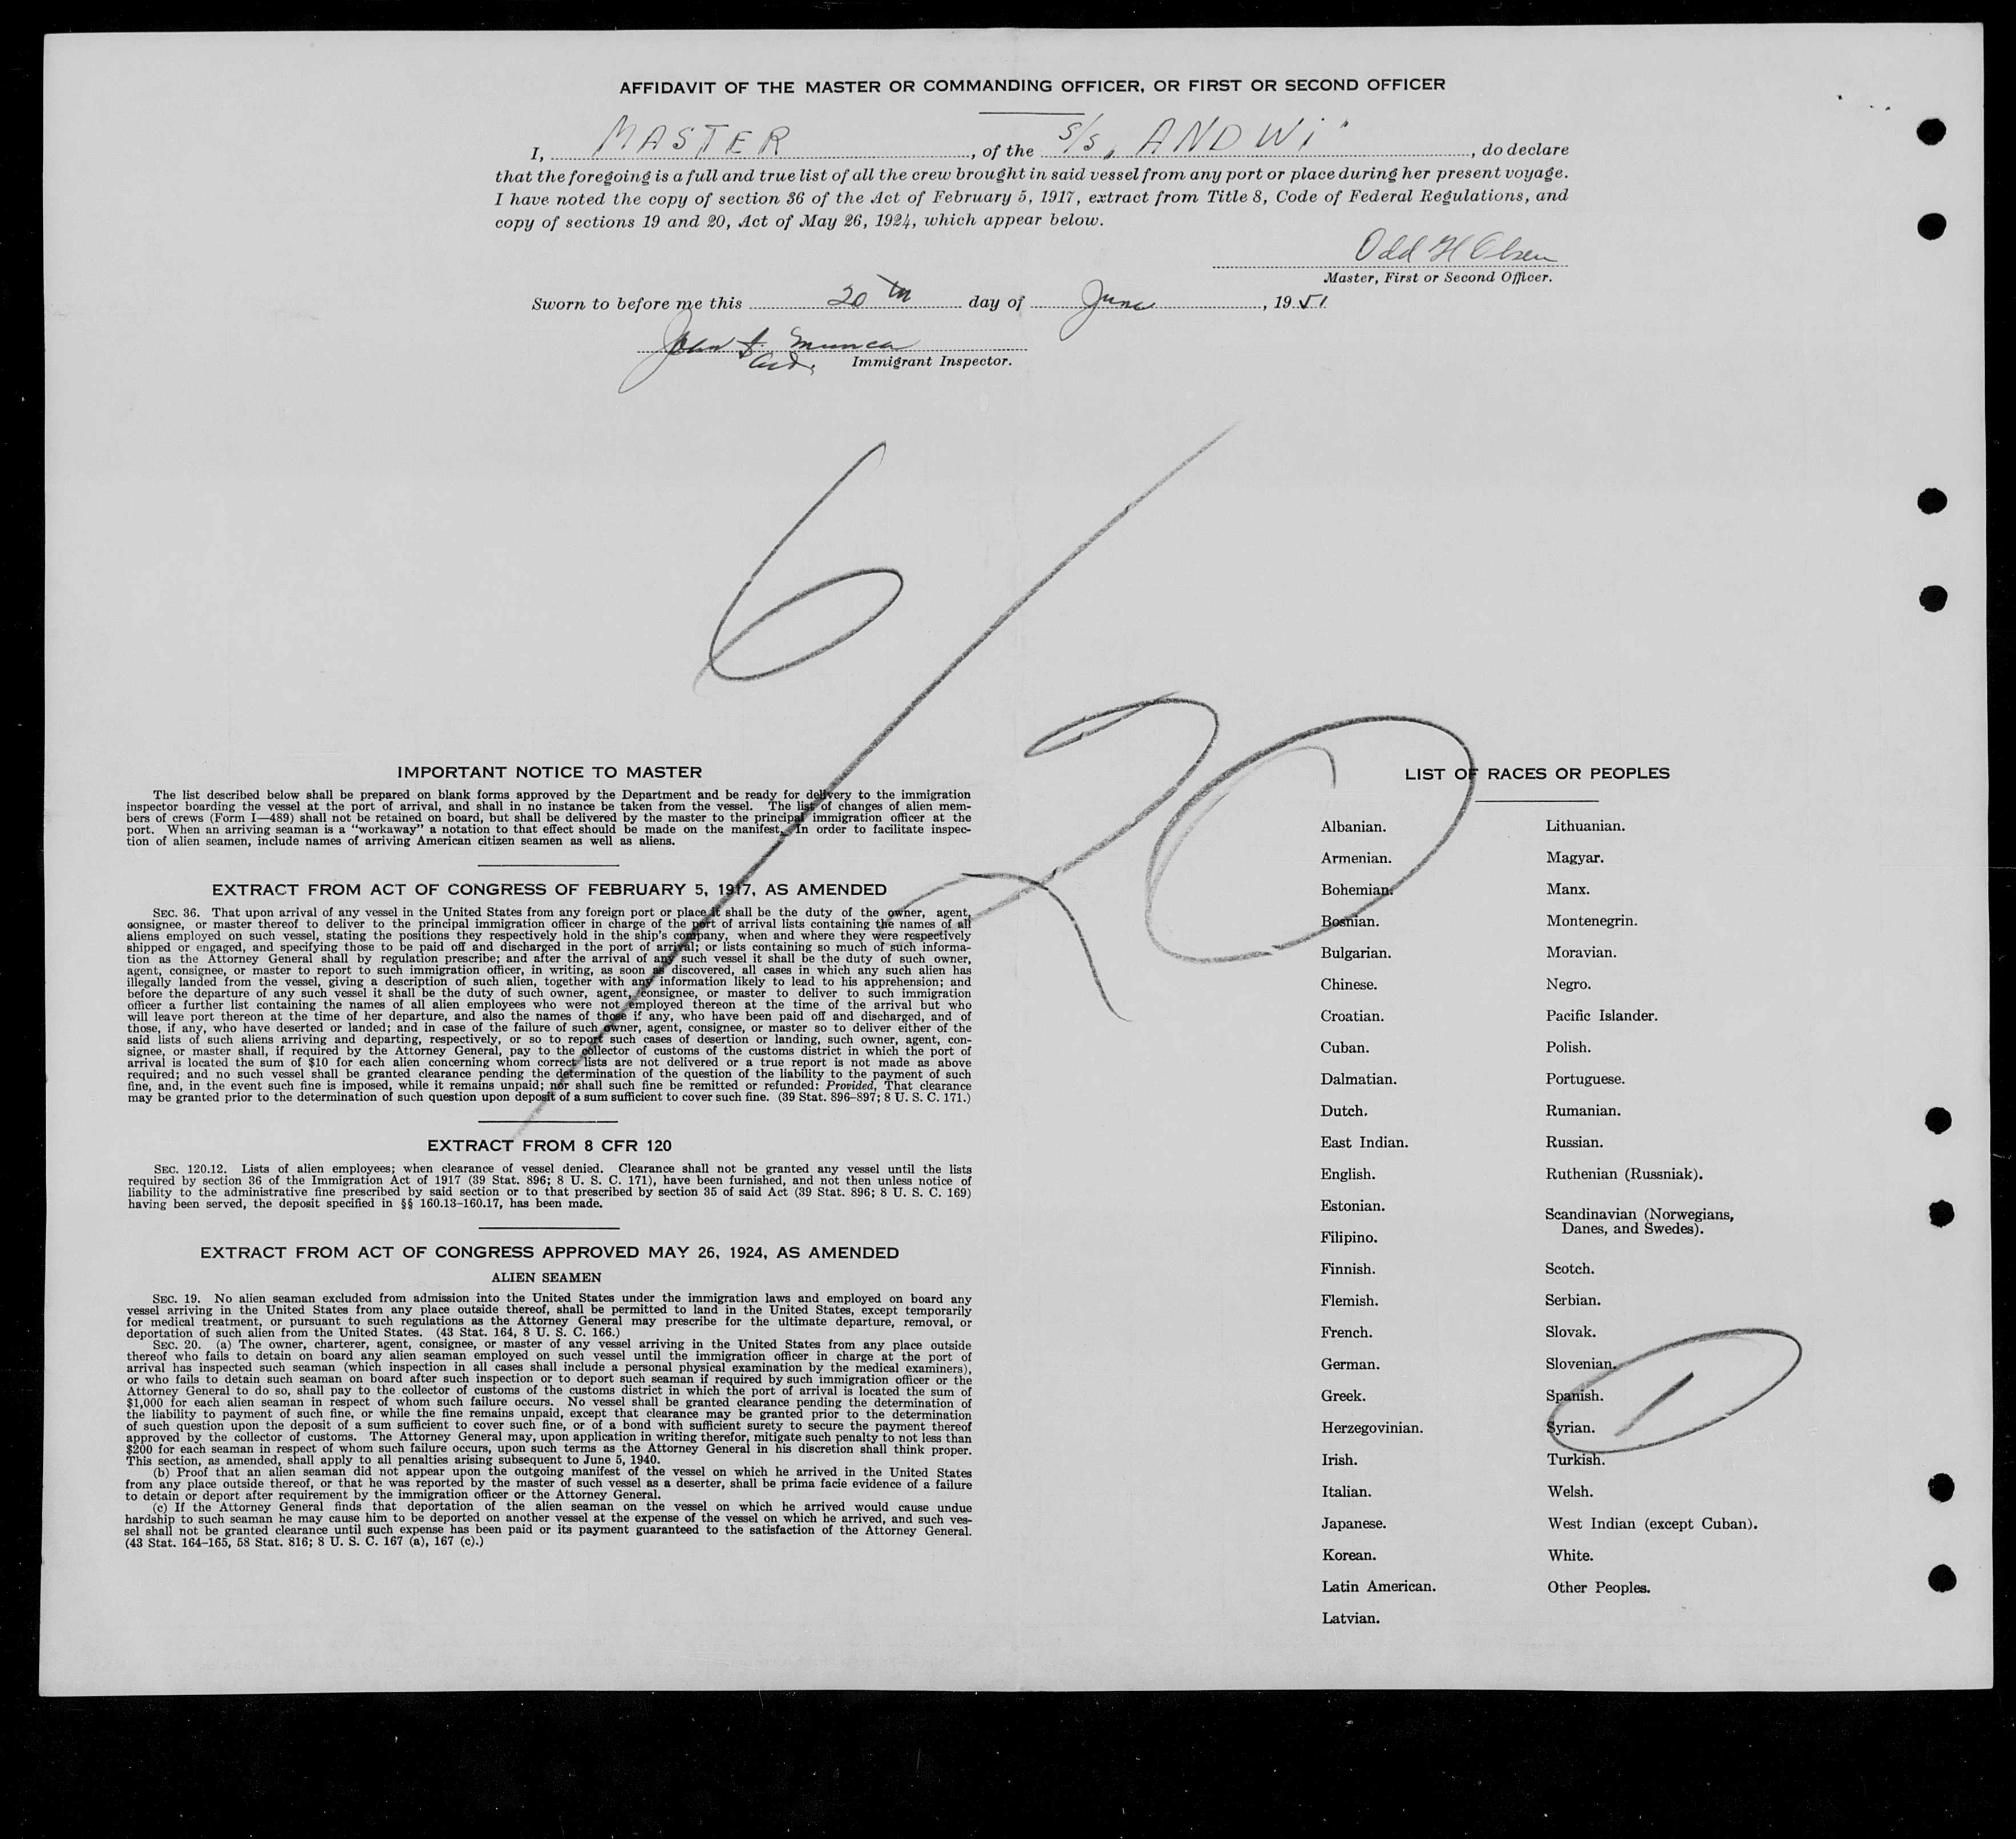 AFFIDAVIT OF THE MASTER OR COMMANDING OFFICER, OR FIRST OR SECOND OFFICER
I, MASTER, of the S/S, ANDWI, do declare
that the foregoing is a full and true list of all the crew brought in said vessel from any port or place during her present voyage.
I have noted the copy of section 36 of the Act of February 5, 1917, extract from Title 8, Code of Federal Regulations, and
copy of sections 19 and 20, Act of May 26, 1924, which appear below.
Odd H Olsen
Master, First or Second Officer.
Sworn to before me this 20th day of June, 1951
John
Immigrant Inspector.
6/20
IMPORTANT NOTICE TO MASTER
The list described below shall be prepared on blank forms approved by the Department and be ready for delivery to the immigration
inspector boarding the vessel at the port of arrival, and shall in no instance be taken from the vessel. The list of changes of alien mem-
bers of crews (Form I—489) shall not be retained on board, but shall be delivered by the master to the principal immigration officer at the
port. When an arriving seaman is a “workaway” a notation to that effect should be made on the manifest. In order to facilitate inspec-
tion of alien seamen, include names of arriving American citizen seamen as well as aliens.
EXTRACT FROM ACT OF CONGRESS OF FEBRUARY 5, 1917, AS AMENDED
SEC. 36. That upon arrival of any vessel in the United States from any foreign port or place it shall be the duty of the owner, agent,
consignee, or master thereof to deliver to the principal immigration officer in charge of the port of arrival lists containing the names of all
aliens employed on such vessel, stating the positions they respectively hold in the ship's company, when and where they were respectively
shipped or engaged, and specifying those to be paid off and discharged in the port of arrival; or lists containing so much of such informa-
tion as the Attorney General shall by regulation prescribe; and after the arrival of any such vessel it shall be the duty of such owner,
agent, consignee, or master to report to such immigration officer, in writing, as soon as discovered, all cases in which any such alien has
illegally landed from the vessel, giving a description of such alien, together with any information likely to lead to his apprehension; and
before the departure of any such vessel it shall be the duty of such owner, agent, consignee, or master to deliver to such immigration
officer a further list containing the names of all alien employees who were not employed thereon at the time of the arrival but who
will leave port thereon at the time of her departure, and also the names of those if any, who have been paid off and discharged, and of
those, if any, who have deserted or landed; and in case of the failure of such owner, agent, consignee, or master so to deliver either of the
said lists of such aliens arriving and departing, respectively, or so to report such cases of desertion or landing, such owner, agent, con-
signee, or master shall, if required by the Attorney General, pay to the collector of customs of the customs district in which the port of
arrival is located the sum of $10 for each alien concerning whom correct lists are not delivered or a true report is not made as above
required; and no such vessel shall be granted clearance pending the determination of the question of the liability to the payment of such
fine, and, in the event such fine is imposed, while it remains unpaid; nor shall such fine be remitted or refunded: Provided, That clearance
may be granted prior to the determination of such question upon deposit of a sum sufficient to cover such fine. (39 Stat. 896–897; 8 U. S. C. 171.)
EXTRACT FROM 8 CFR 120
SEC. 120.12. Lists of alien employees; when clearance of vessel denied. Clearance shall not be granted any vessel until the lists
required by section 36 of the Immigration Act of 1917 (39 Stat. 896; 8 U. S. C. 171), have been furnished, and not then unless notice of
liability to the administrative fine prescribed by said section or to that prescribed by section 35 of said Act (39 Stat. 896; 8 U. S. C. 169)
having been served, the deposit specified in §§ 160.13–160.17, has been made.
EXTRACT FROM ACT OF CONGRESS APPROVED MAY 26, 1924, AS AMENDED
ALIEN SEAMEN
SEC. 19. No alien seaman excluded from admission into the United States under the immigration laws and employed on board any
vessel arriving in the United States from any place outside thereof, shall be permitted to land in the United States, except temporarily
for medical treatment, or pursuant to such regulations as the Attorney General may prescribe for the ultimate departure, removal, or
deportation of such alien from the United States. (43 Stat. 164, 8 U. S. C. 166.)
SEC. 20. (a) The owner, charterer, agent, consignee, or master of any vessel arriving in the United States from any place outside
thereof who fails to detain on board any alien seaman employed on such vessel until the immigration officer in charge at the port of
arrival has inspected such seaman (which inspection in all cases shall include a personal physical examination by the medical examiners),
or who fails to detain such seaman on board after such inspection or to deport such seaman if required by such immigration officer or the
Attorney General to do so, shall pay to the collector of customs of the customs district in which the port of arrival is located the sum of
$1,000 for each alien seaman in respect of whom such failure occurs. No vessel shall be granted clearance pending the determination of
the liability to payment of such fine, or while the fine remains unpaid, except that clearance may be granted prior to the determination
of such question upon the deposit of a sum sufficient to cover such fine, or of a bond with sufficient surety to secure the payment thereof
approved by the collector of customs. The Attorney General may, upon application in writing therefor, mitigate such penalty to not less than
$200 for each seaman in respect of whom such failure occurs, upon such terms as the Attorney General in his discretion shall think proper.
This section, as amended, shall apply to all penalties arising subsequent to June 5, 1940.
(b) Proof that an alien seaman did not appear upon the outgoing manifest of the vessel on which he arrived in the United States
from any place outside thereof, or that he was reported by the master of such vessel as a deserter, shall be prima facie evidence of a failure
to detain or deport after requirement by the immigration officer or the Attorney General.
(c) If the Attorney General finds that deportation of the alien seaman on the vessel on which he arrived would cause undue
hardship to such seaman he may cause him to be deported on another vessel at the expense of the vessel on which he arrived, and such ves-
sel shall not be granted clearance until such expense has been paid or its payment guaranteed to the satisfaction of the Attorney General.
(43 Stat. 164–165, 58 Stat. 816; 8 U. S. C. 167 (a), 167 (c).)
LIST OF RACES OR PEOPLES
Albanian.
Armenian.
Bohemian.
Bosnian.
Bulgarian.
Chinese.
Croatian.
Cuban.
Dalmatian.
Dutch.
East Indian.
English.
Estonian.
Filipino.
Finnish.
Flemish.
French.
German.
Greek.
Herzegovinian.
Irish.
Italian.
Japanese.
Korean.
Latin American.
Latvian.
Lithuanian.
Magyar.
Manx.
Montenegrin.
Moravian.
Negro.
Pacific Islander.
Polish.
Portuguese.
Rumanian.
Russian.
Ruthenian (Russniak).
Scandinavian (Norwegians,
Danes, and Swedes).
Scotch.
Serbian.
Slovak.
Slovenian.
Spanish.
Syrian.
Turkish.
Welsh.
West Indian (except Cuban).
White.
Other Peoples.
1